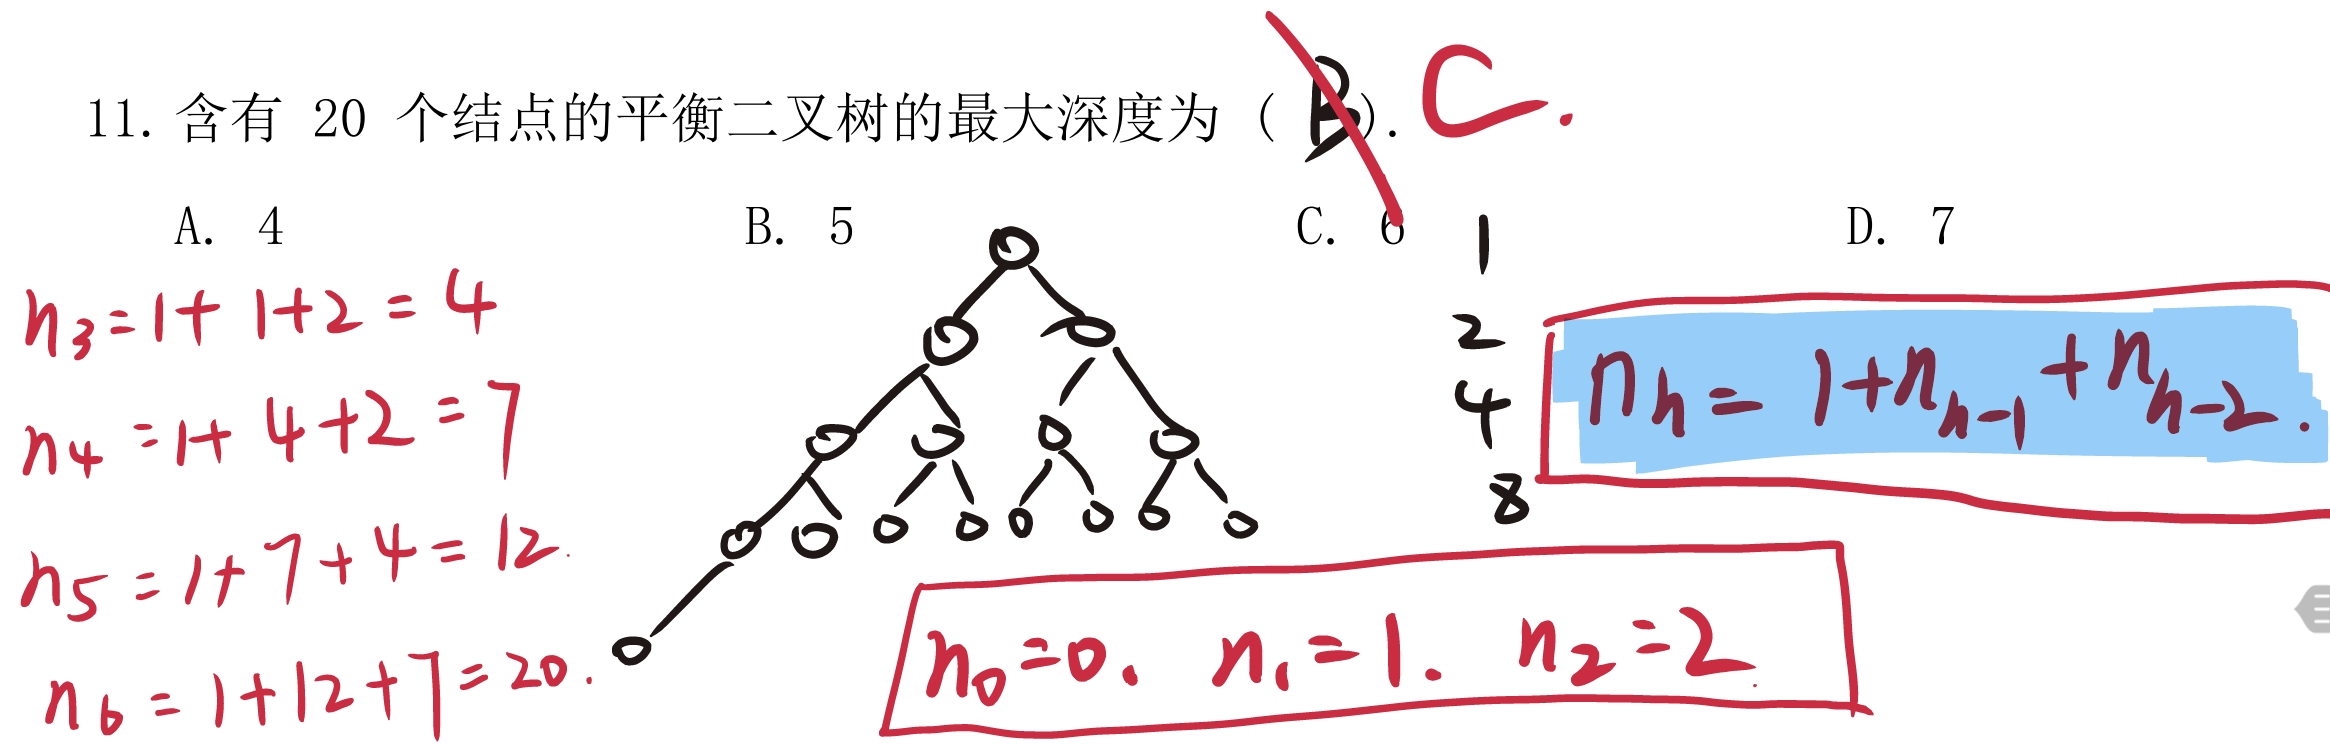 11. 含有 20 个结点的平衡二叉树的最大深度为 ( B ). C.
A. 4 B. 5 C. 6 D. 7
1
2
4
8
n₃=1+1+2=4
n₄=1+4+2=7
n₅=1+7+4=12.
n₆=1+12+7=20.
nₕ=1+nₕ₋₁+nₕ₋₂.
n₀=0. n₁=1. n₂=2.